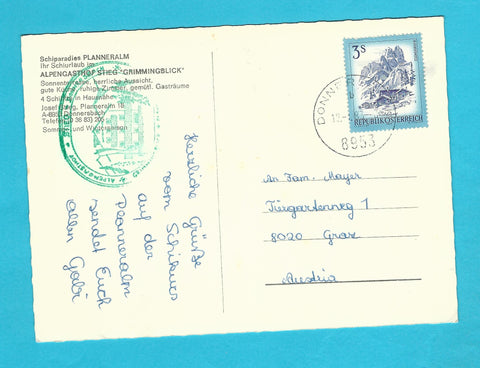 Schiparadies PLANNERALM
Ihr Schiurlaub im
ALPENGASTHOF STIEG-"GRIMMINGBLICK"
Sonnenterrasse, herrliche Aussicht,
gute Küche, ruhige Zimmer, gemütl. Gasträume
4 Schilifte in Hausnähe
Josef Stieg, Planneralm 18
A-8953 Donnersbach
Telefon (0 36 83)
Sommer- und Wintersaison
ALPENGASTHOF
3S
REPUBLIK ÖSTERREICH
8953
Herzliche Grüße
vom Schikurs
auf der
Planneralm
sendet Euch
allen Gabi
An Fam. Mayer
Tiergartenweg 1
8020 Graz
Austria